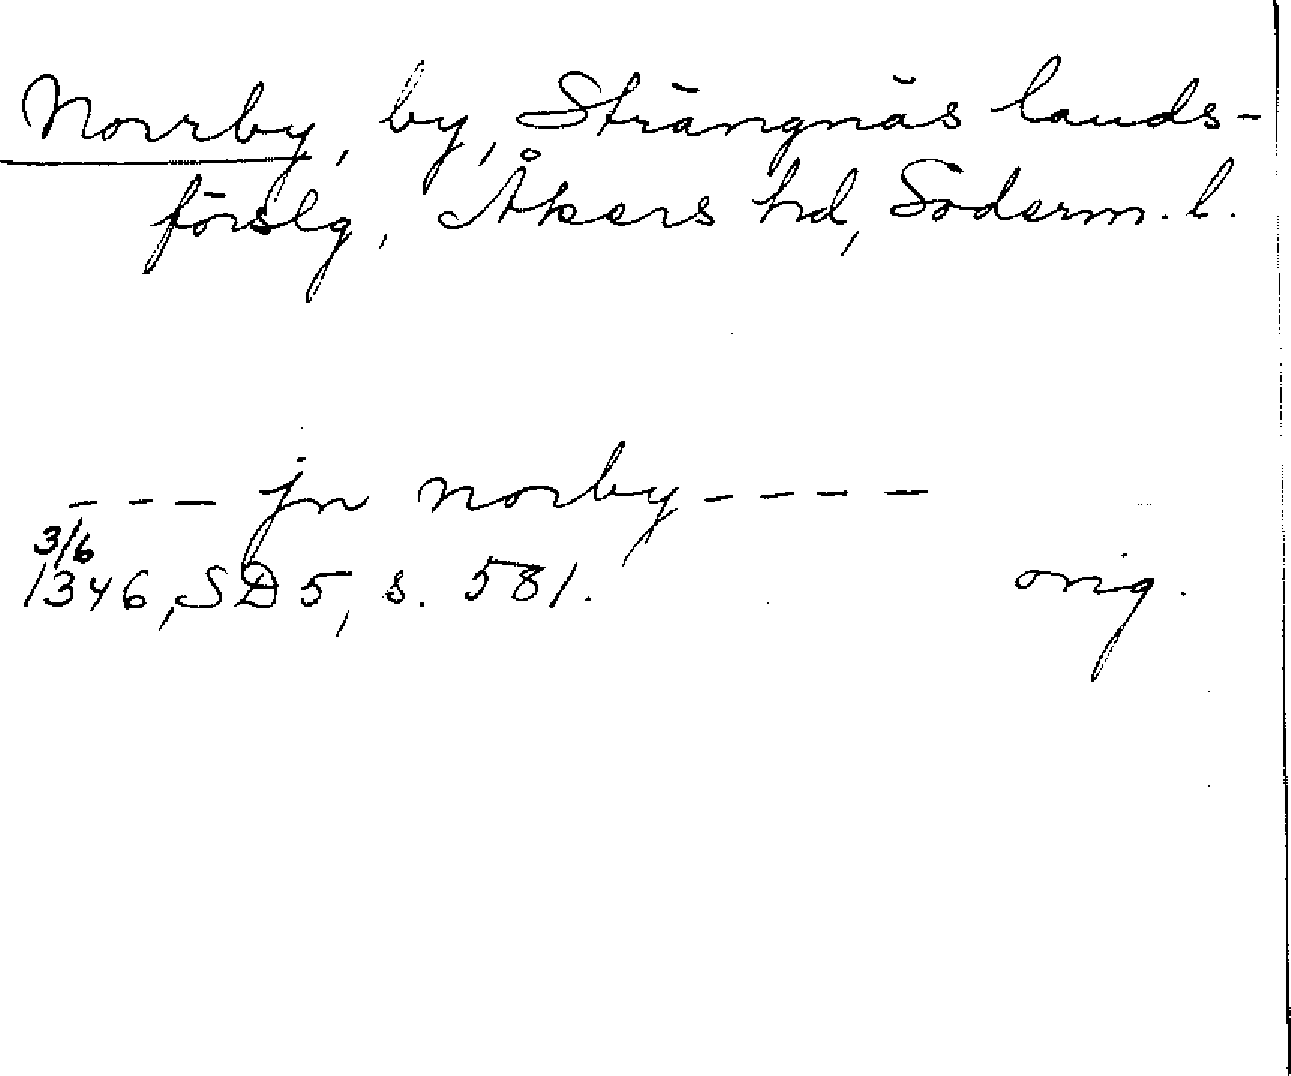 Norrby, by, Strängnäs lands-
förslg, Åkers hd, Söderm. l.
--- jn norby ----
3/6
1346, SD 5, s. 581. orig.